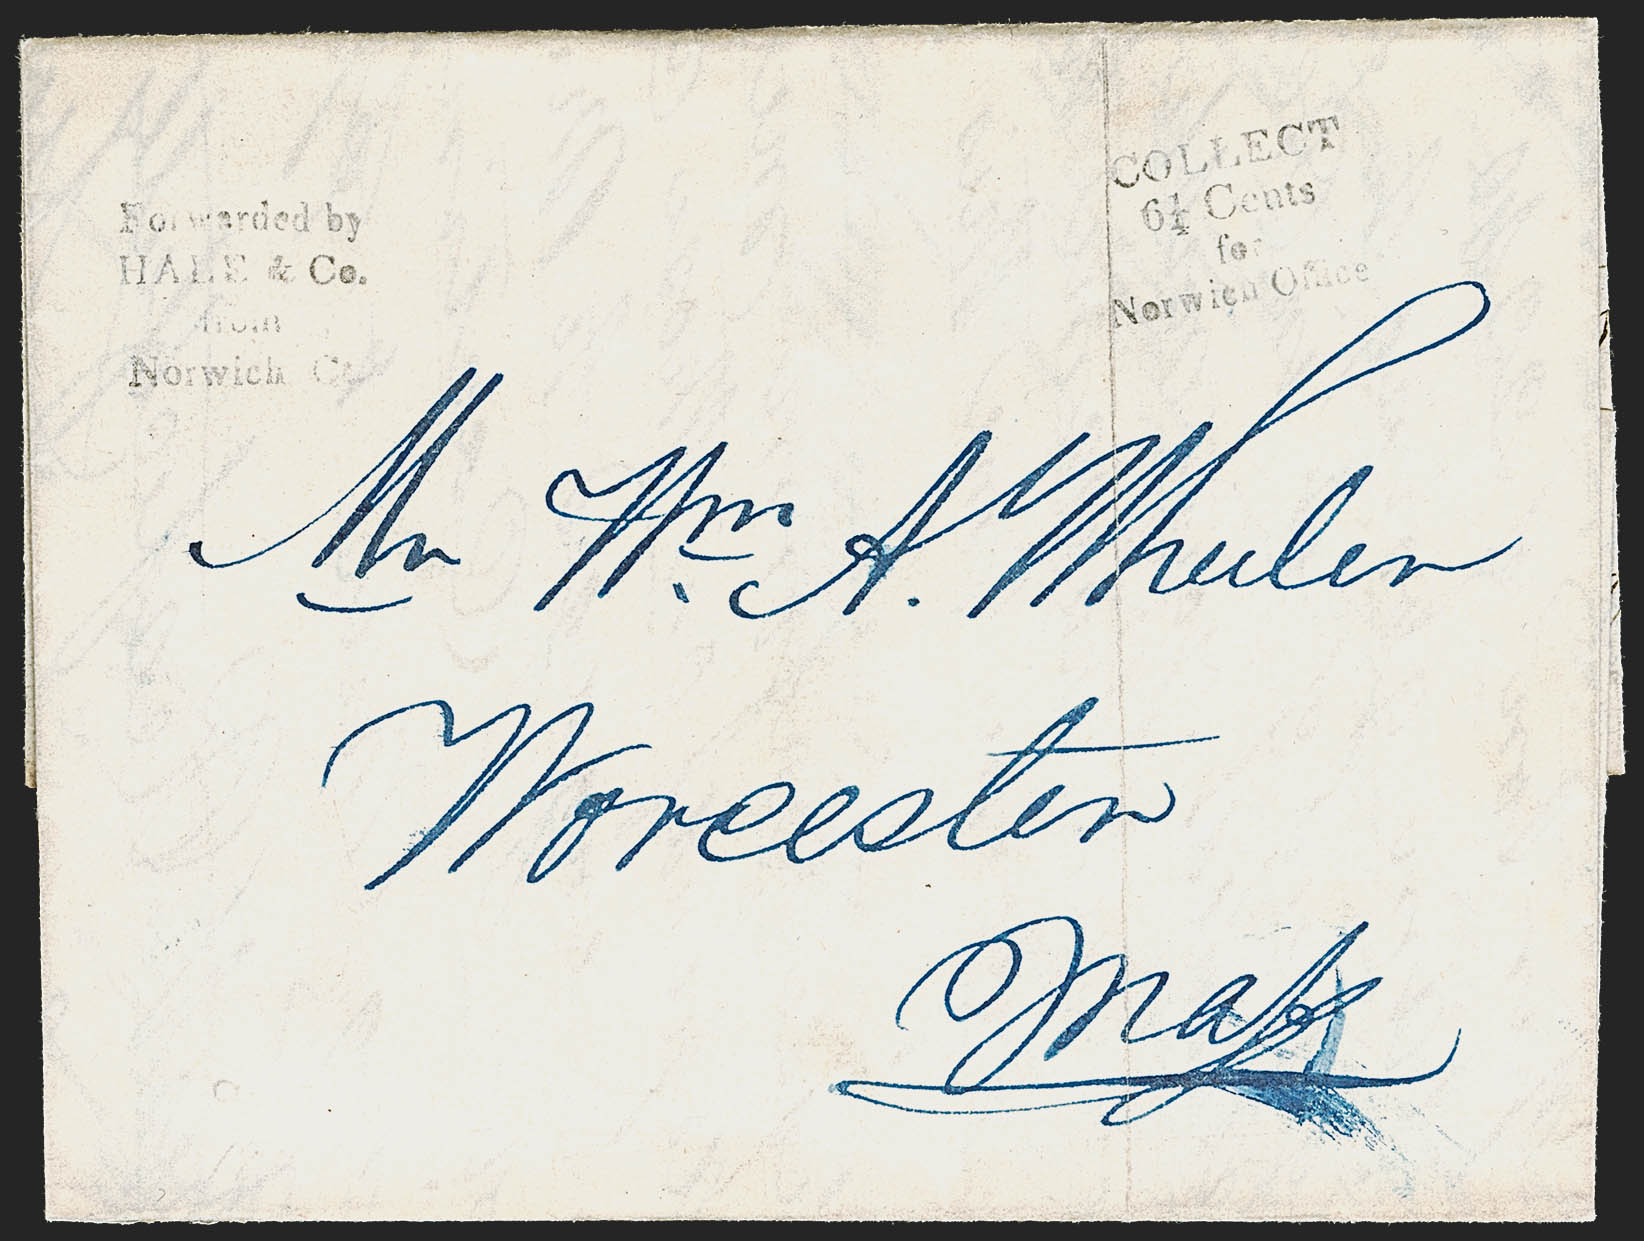 Forwarded by
HALE & Co.
from
Norwich Ct.
COLLECT
6¼ Cents
for
Norwich Office
Mr Wm. A. Wheeler
Worcester
Mass